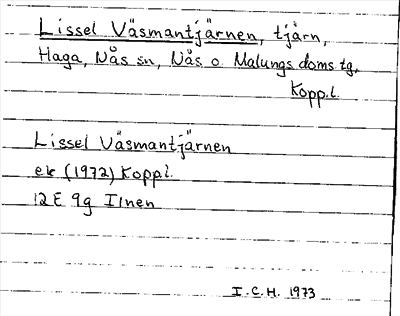 Lissel Väsmantjärnen, tjärn,
Haga, Nås sn, Nås o. Malungs doms tg,
Kopp.l.
Lissel Väsmantjärnen
ek (1972) Koppl.
12E 9g Ilnen
I.C.H. 1973